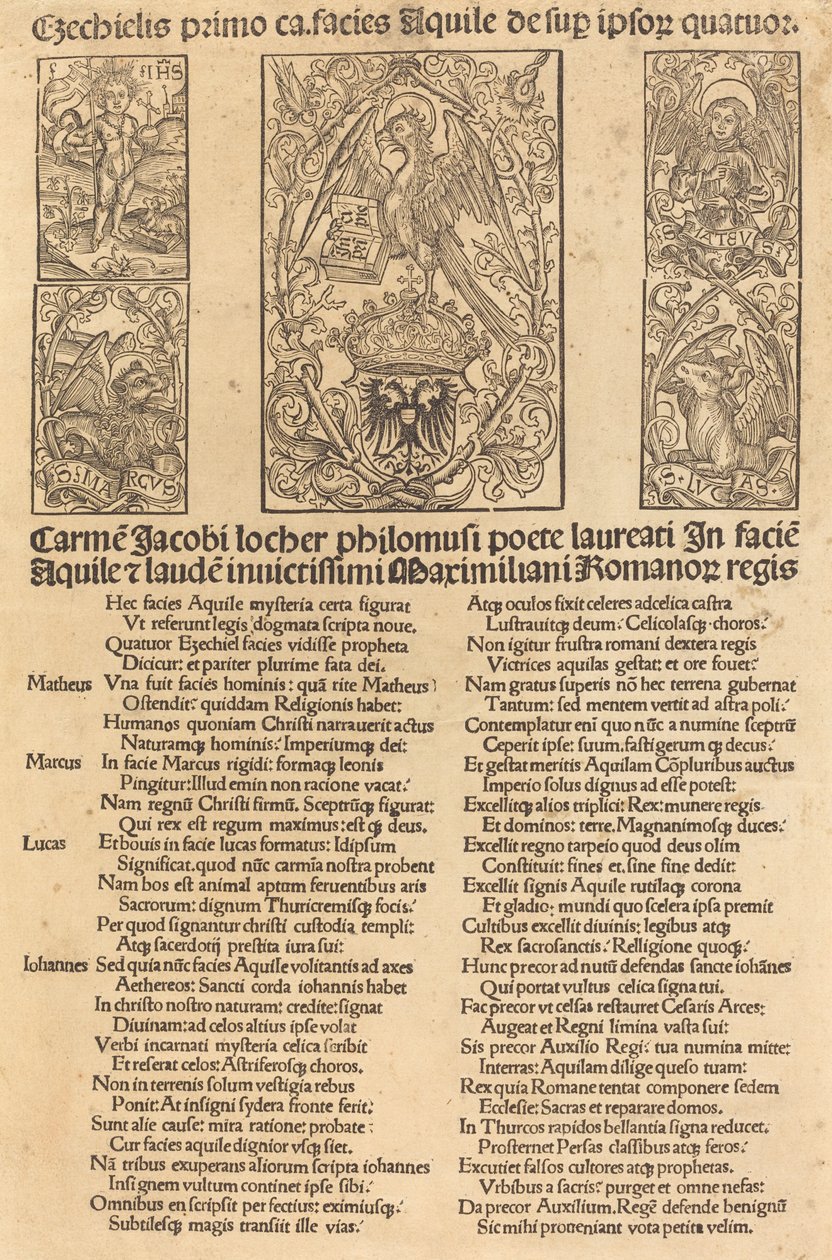 Ezechielis primo ca. facies Aquile desup ipsoꝝ quatuor.
IHS
In
pri
ci
pio
S MATEVS
S MARCVS
S LVCAS
Carmē Jacobi locher philomusi poete laureati In faciē
Aquile ⁊ laudē inuictissimi Maximiliani Romanoꝝ regis
Hec facies Aquile mysteria certa figurat
Vt referunt legis dogmata scripta noue.
Quatuor Ezechiel facies vidisse propheta
Dicicur: et pariter plurime fata dei.
Matheus Vna fuit facies hominis: quā rite Matheus
Ostendit: quiddam Religionis habet:
Humanos quoniam Christi narrauerit actus
Naturamqꝫ hominis: Imperiumqꝫ dei:
Marcus In facie Marcus rigidi: formaqꝫ leonis
Pingitur: Illud emin non racione vacat:
Nam regnū Christi firmū. Sceptrūqꝫ figurat:
Qui rex est regum maximus: est qꝫ deus.
Lucas Et bouis in facie lucas formatus: Idipsum
Significat. quod nūc carmīa nostra probent
Nam bos est animal aptum feruentibus aris
Sacrorum: dignum Thuricremisqꝫ focis:
Per quod signantur christi custodia templi:
Atqꝫ sacerdotij prestita iura sui:
Iohannes Sed quia nūc facies Aquile volitantis ad axes
Aethereos: Sancti corda iohannis habet
In christo nostro naturam: credite: signat
Diuinam: ad celos altius ipse volat
Verbi incarnati mysteria celica scribit
Et reserat celos: Astriferosqꝫ choros.
Non in terrenis solum vestigia rebus
Ponit: At insigni sydera fronte ferit:
Sunt alie cause: mira ratione: probate:
Cur facies aquile dignior vsqꝫ siet.
Nā tribus exuperans aliorum scripta iohannes
Insignem vultum continet ipse sibi:
Omnibus en scripsit perfectius: eximiusqꝫ:
Subtilesqꝫ magis transiit ille vias:
Atqꝫ oculos fixit celeres ad celica castra
Lustrauitqꝫ deum: Celicolasqꝫ choros:
Non igitur frustra romani dextera regis
Victrices aquilas gestat: et ore fouet:
Nam gratus superis nō hec terrena gubernat
Tantum: sed mentem vertit ad astra poli:
Contemplatur eni quo nūc a numine sceptrū
Ceperit ipse: suum. fastigerum qꝫ decus:
Et gestat meritis Aquilam Cōpluribus auctus
Imperio solus dignus ad esse potest:
Excellitqꝫ alios triplici: Rex: munere regis
Et dominos: terre. Magnanimosqꝫ duces:
Excellit regno tarpeio quod deus olim
Constituit: fines et. sine fine dedit:
Excellit signis Aquile rutilaqꝫ corona
Et gladio: mundi quo scelera ipsa premit
Cultibus excellit diuinis: legibus atqꝫ
Rex sacrosanctis: Relligione quoqꝫ:
Hunc precor ad nutū defendas sancte iohānes
Qui portat vultus celica signa tui.
Fac precor vt celsas restauret Cesaris Arces:
Augeat et Regni limina vasta sui:
Sis precor Auxilio Regi: tua numina mitte:
In terras: Aquilam dilige queso tuam:
Rex quia Romane tentat componere sedem
Ecclesie: Sacras et reparare domos.
In Thurcos rapidos bellantia signa reducet.
Prosternet Persas classibus atqꝫ feros:
Excutiet falsos cultores atqꝫ prophetas.
Vrbibus a sacris: purget et omne nefas:
Da precor Auxilium. Regē defende benignū
Sic mihi proueniant vota petita velim.